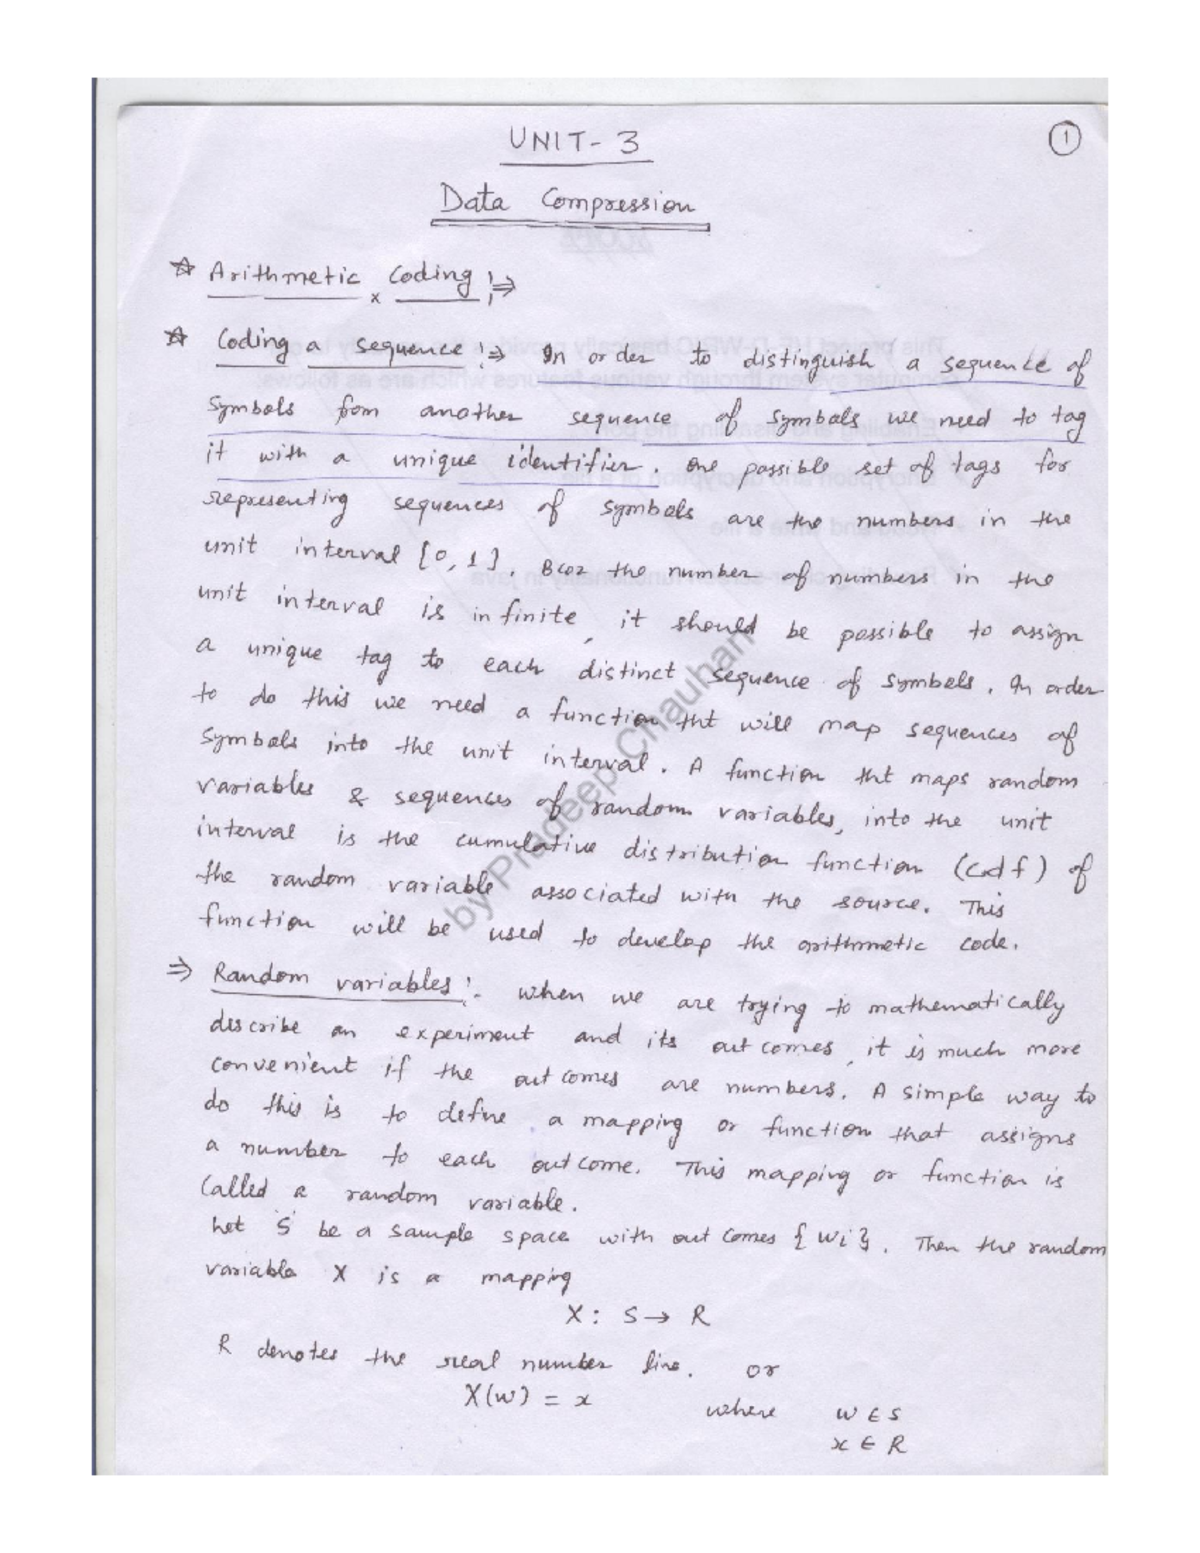 UNIT-3
1
Data Compression
☆ Arithmetic x Coding :⇒
☆ Coding a sequence :⇒ In order to distinguish a sequence of
symbols from another sequence of symbols we need to tag
it with a unique identifier. One possible set of tags for
representing sequences of symbols are the numbers in the
unit interval [0, 1]. Bcoz the number of numbers in the
unit interval is infinite, it should be possible to assign
a unique tag to each distinct sequence of symbols. In order
to do this we need a function tht will map sequences of
symbols into the unit interval. A function tht maps random
variables & sequences of random variables, into the unit
interval is the cumulative distribution function (cdf) of
the random variable associated with the source. This
function will be used to develop the arithmetic code.
⇒ Random variables :- When we are trying to mathematically
describe an experiment and its outcomes, it is much more
convenient if the outcomes are numbers. A simple way to
do this is to define a mapping or function that assigns
a number to each outcome. This mapping or function is
called a random variable.
Let 'S' be a sample space with outcomes {wi}. Then the random
variable X is a mapping
X : S → R
R denotes the real number line. or
X(w) = x where w ∈ S
x ∈ R
by Pradeep Chauhan